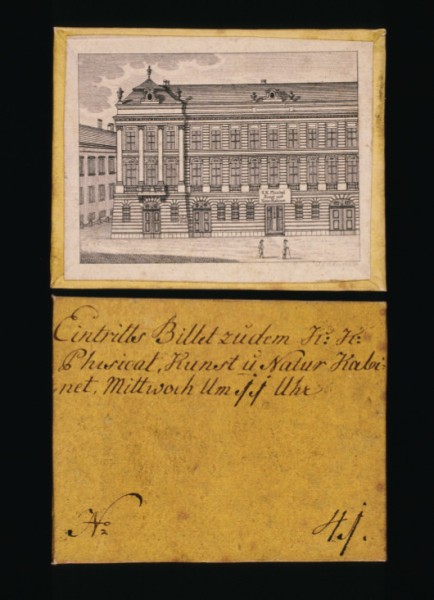 K.K. Physical
Kunst und
Eintritts Billet zu dem K: K:
Phisical, Kunst u Natur Kabi:
net, Mittwoch Um 11 Uhr
No 41.